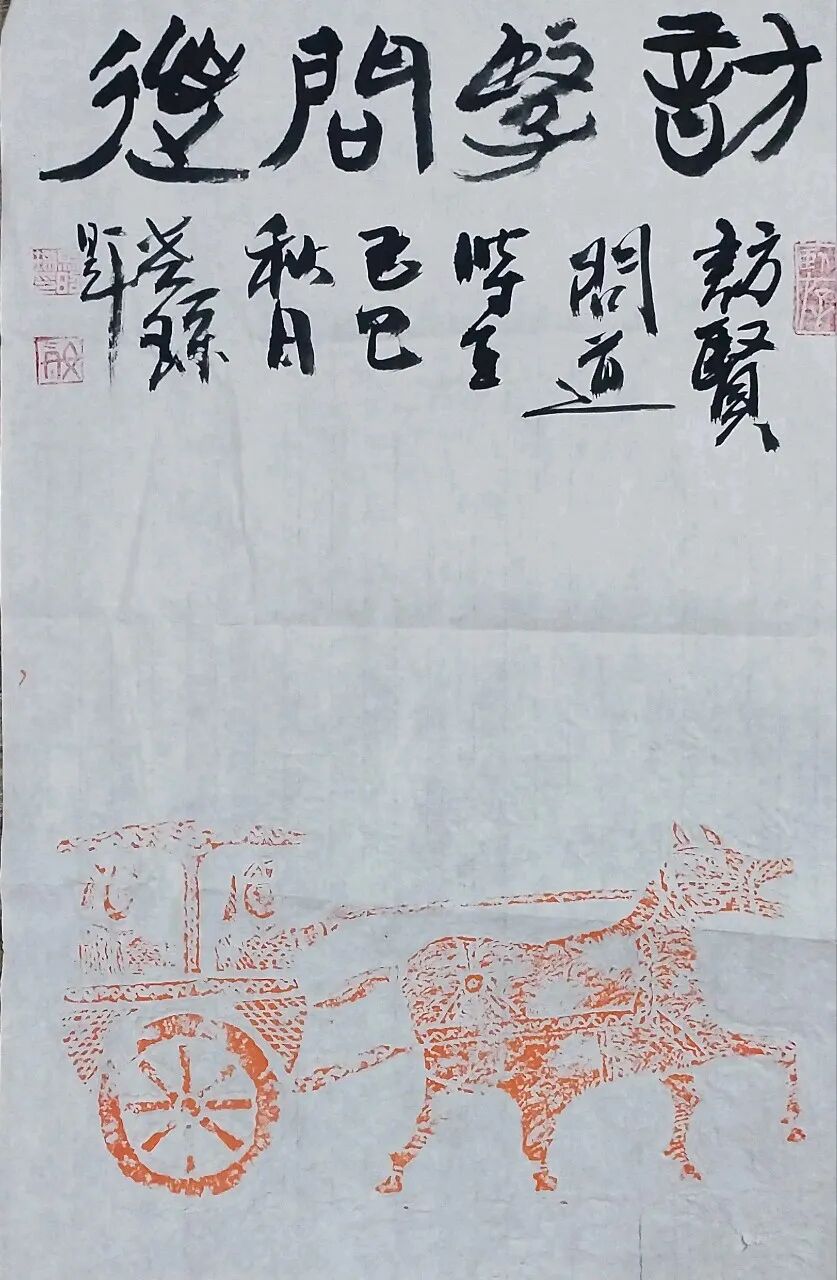 訪賢問道
訪賢
問道
時在
巳
秋月
題